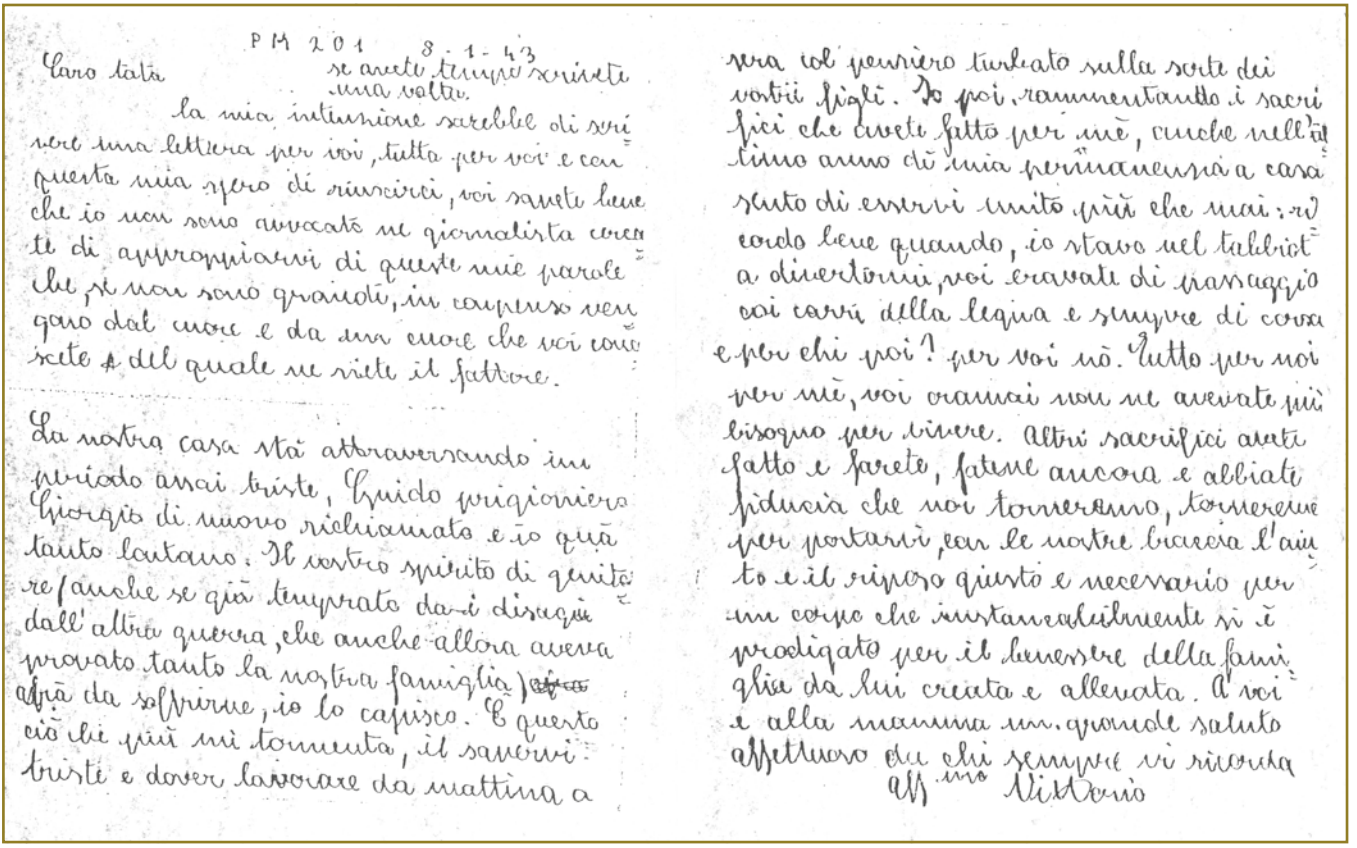 PM 201 8-1-43
Caro tata se avete tempo scrivete
una volta.
la mia intenzione sarebbe di scri
vere una lettera per voi, tutta per voi e con
questa mia spero di riuscirci, voi sapete bene
che io non sono avvocato ne giornalista cerca
te di approppiarvi di queste mie parole
che, se non sono grandi, in conpenso ven
gono dal cuore e da un cuore che voi cono
scete e del quale ne siete il fattore.
La nostra casa stà attraversando un
periodo assai triste, Guido prigioniero
Giorgio di nuovo richiamato e io quà
tanto lontano. Il vostro spirito di genito
re (anche se già temprato dai disagi
dall'altra guerra, che anche allora aveva
provato tanto la nostra famiglia)
avrà da soffrirne, io lo capisco. E questo
ciò che più mi tormenta, il sapervi
triste e dover lavorare da mattina a
sera col pensiero turbato sulla sorte dei
vostri figli. Io poi, rammentando i sacri
fici che avete fatto per mè, anche nell'ul
timo anno di mia permanenza a casa
sento di esservi unito più che mai: ri
cordo bene quando, io stavo nel
a divertirmi, voi eravate di passaggio
coi carri della legna e sempre di corsa
e per chi poi? per voi nò. Tutto per noi
per mè, voi oramai non ne avevate più
bisogno per vivere. Altri sacrifici avete
fatto e farete, fatene ancora e abbiate
fiducia che noi torneremo, torneremo
per portarvi, con le nostre braccia l'aiu
to e il riposo giusto e necessario per
un corpo che instancabilmente si è
prodigato per il benessere della fami
glia da lui creata e allevata. A voi
e alla mamma un grande saluto
affettuoso da chi sempre vi ricorda
aff.mo Vittorio